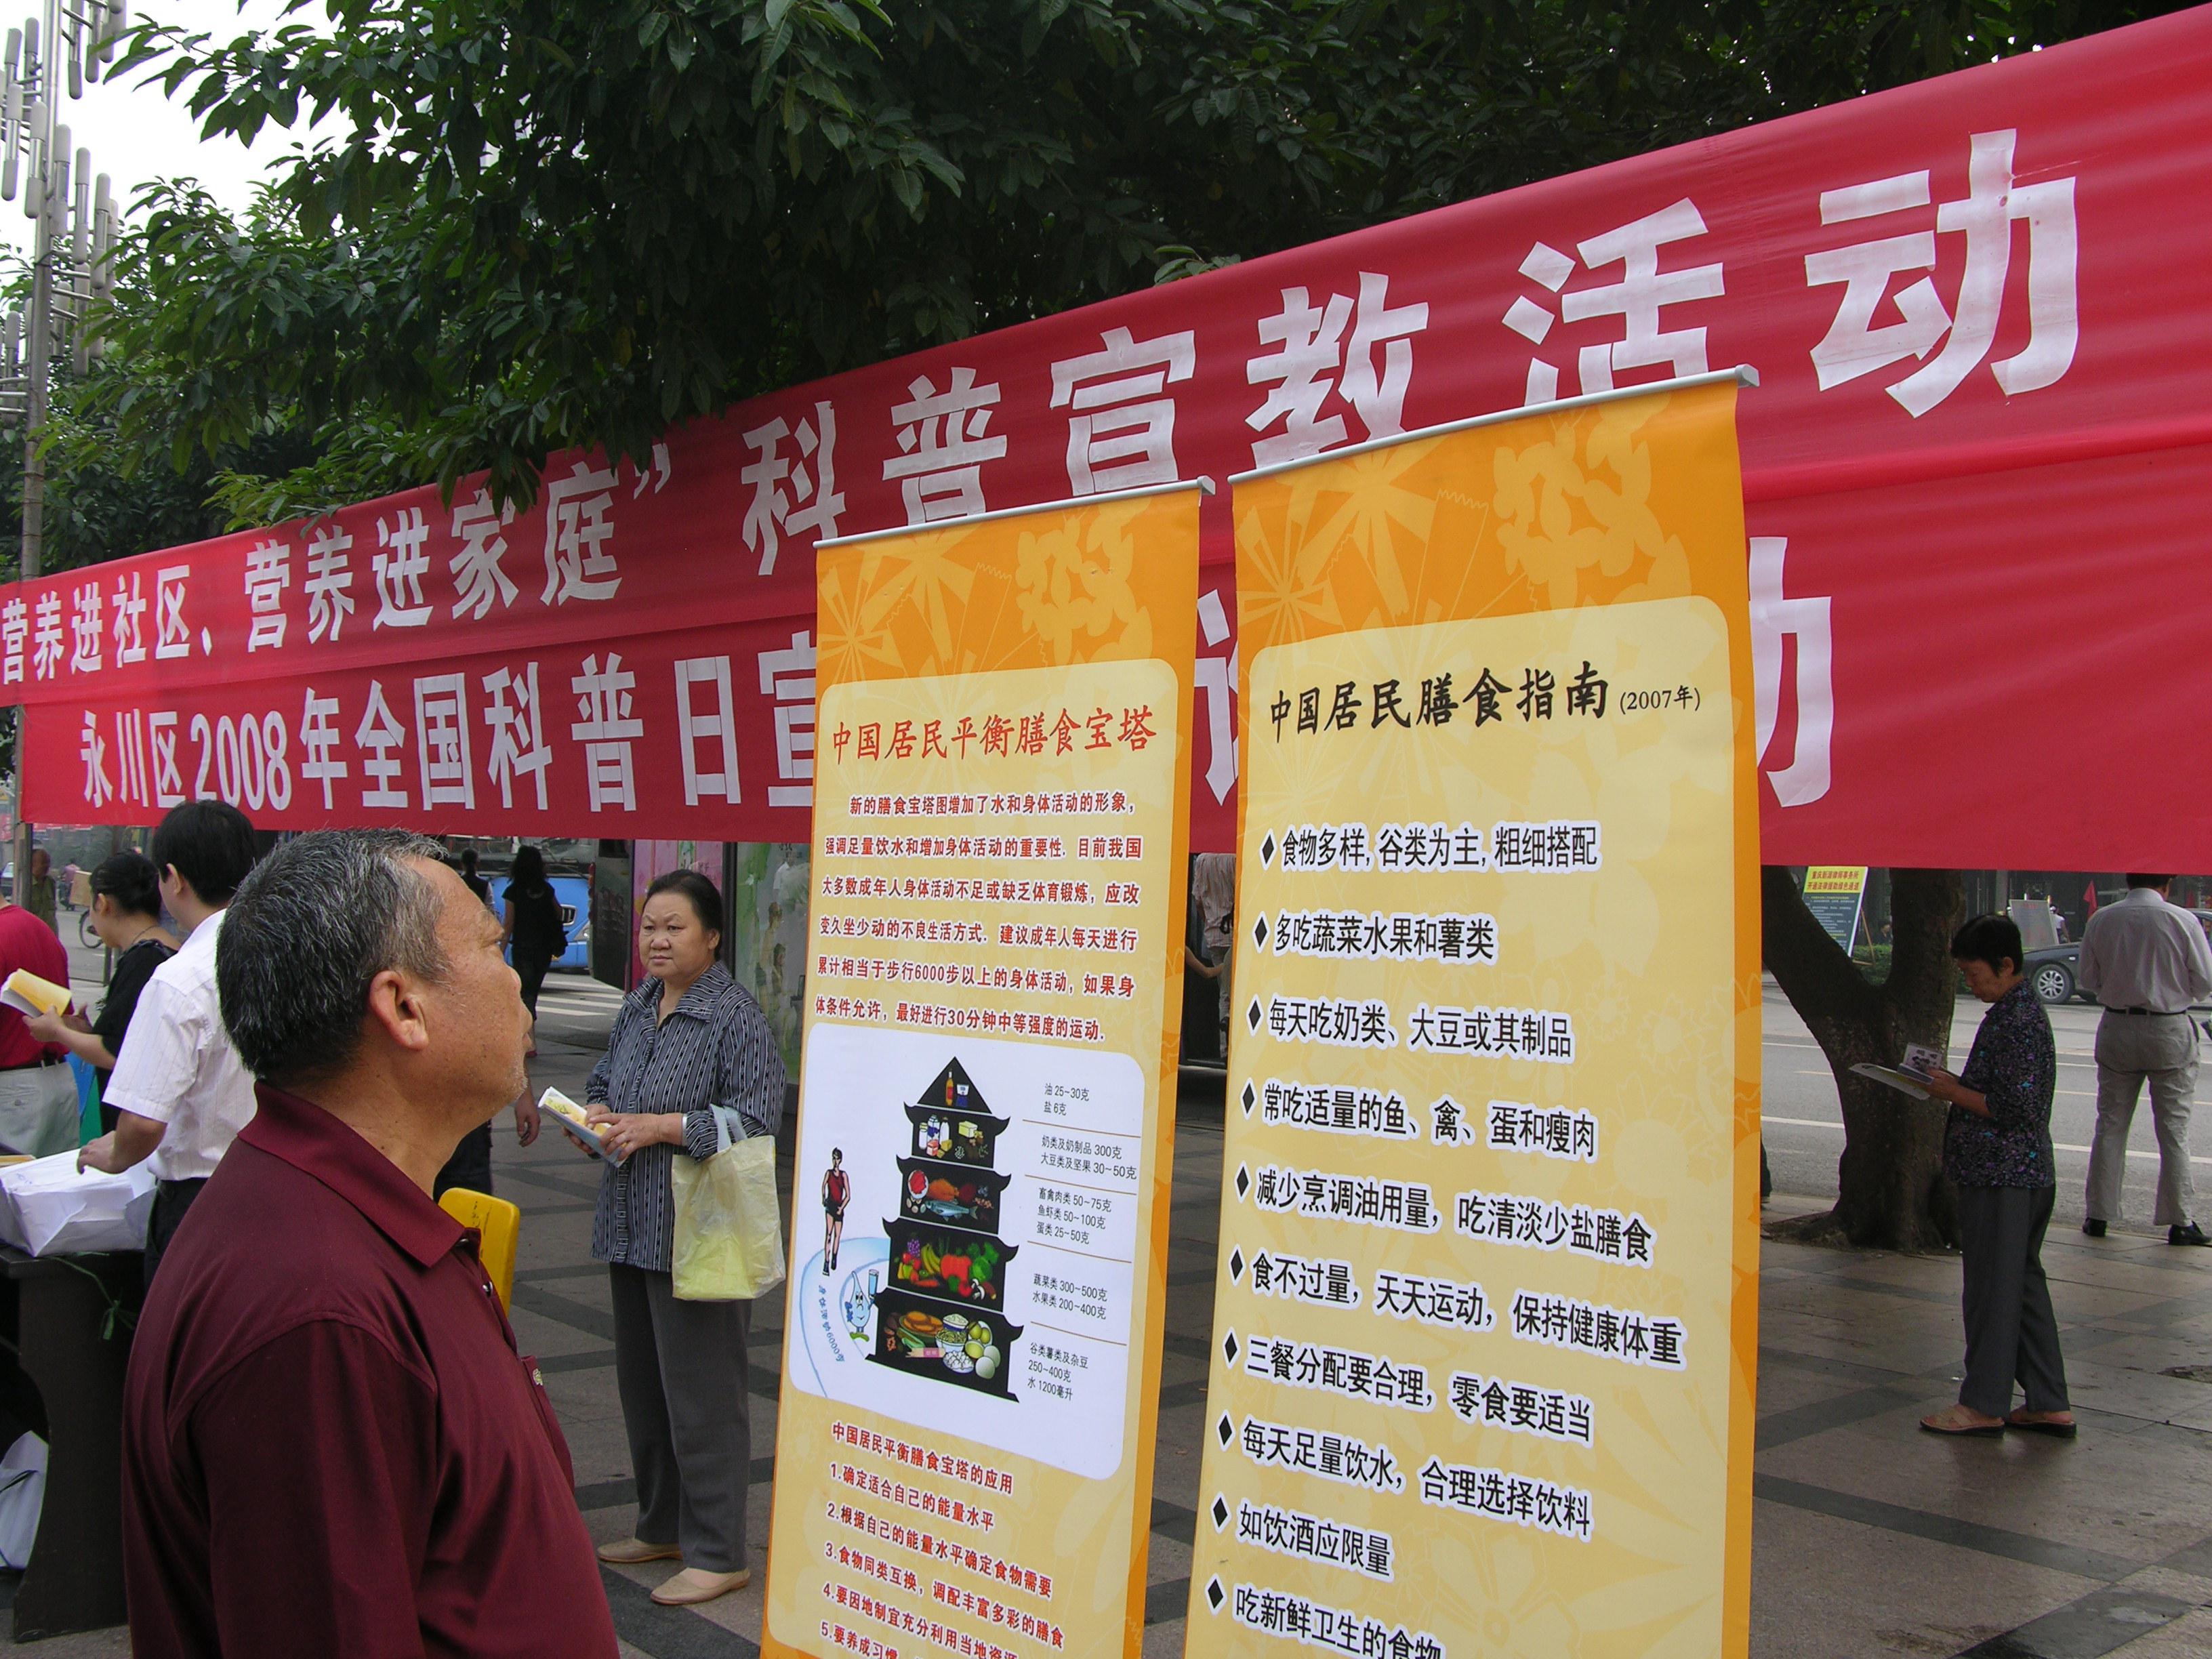 营养进社区、营养进家庭”科普宣教活动
永川区2008年全国科普日宣
动
中国居民平衡膳食宝塔
新的膳食宝塔图增加了水和身体活动的形象，
强调足量饮水和增加身体活动的重要性. 目前我国
大多数成年人身体活动不足或缺乏体育锻炼，应改
变久坐少动的不良生活方式. 建议成年人每天进行
累计相当于步行6000步以上的身体活动，如果身
体条件允许，最好进行30分钟中等强度的运动.
油 25~30克
盐 6克
奶类及奶制品 300克
大豆类及坚果 30~50克
畜禽肉类 50~75克
鱼虾类 50~100克
蛋类 25~50克
蔬菜类 300~500克
水果类 200~400克
谷类薯类及杂豆
250~400克
水 1200毫升
身体活动6000步
中国居民平衡膳食宝塔的应用
1.确定适合自己的能量水平
2.根据自己的能量水平确定食物需要
3.食物同类互换，调配丰富多彩的膳食
4.要因地制宜充分利用当地资源
5.要养成习惯
中国居民膳食指南 (2007年)
◆食物多样, 谷类为主, 粗细搭配
◆多吃蔬菜水果和薯类
◆每天吃奶类、大豆或其制品
◆常吃适量的鱼、禽、蛋和瘦肉
◆减少烹调油用量，吃清淡少盐膳食
◆食不过量，天天运动，保持健康体重
◆三餐分配要合理，零食要适当
◆每天足量饮水，合理选择饮料
◆如饮酒应限量
◆吃新鲜卫生的食物